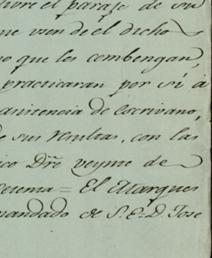 sobre el paraje de su
que usen de el dicho
no que les combengan,
practicaran por sí à
asistencia de Escrivano,
de sus resultas, con las
Dre veynte de
= El Marques
mandado de S.E. D. Jose